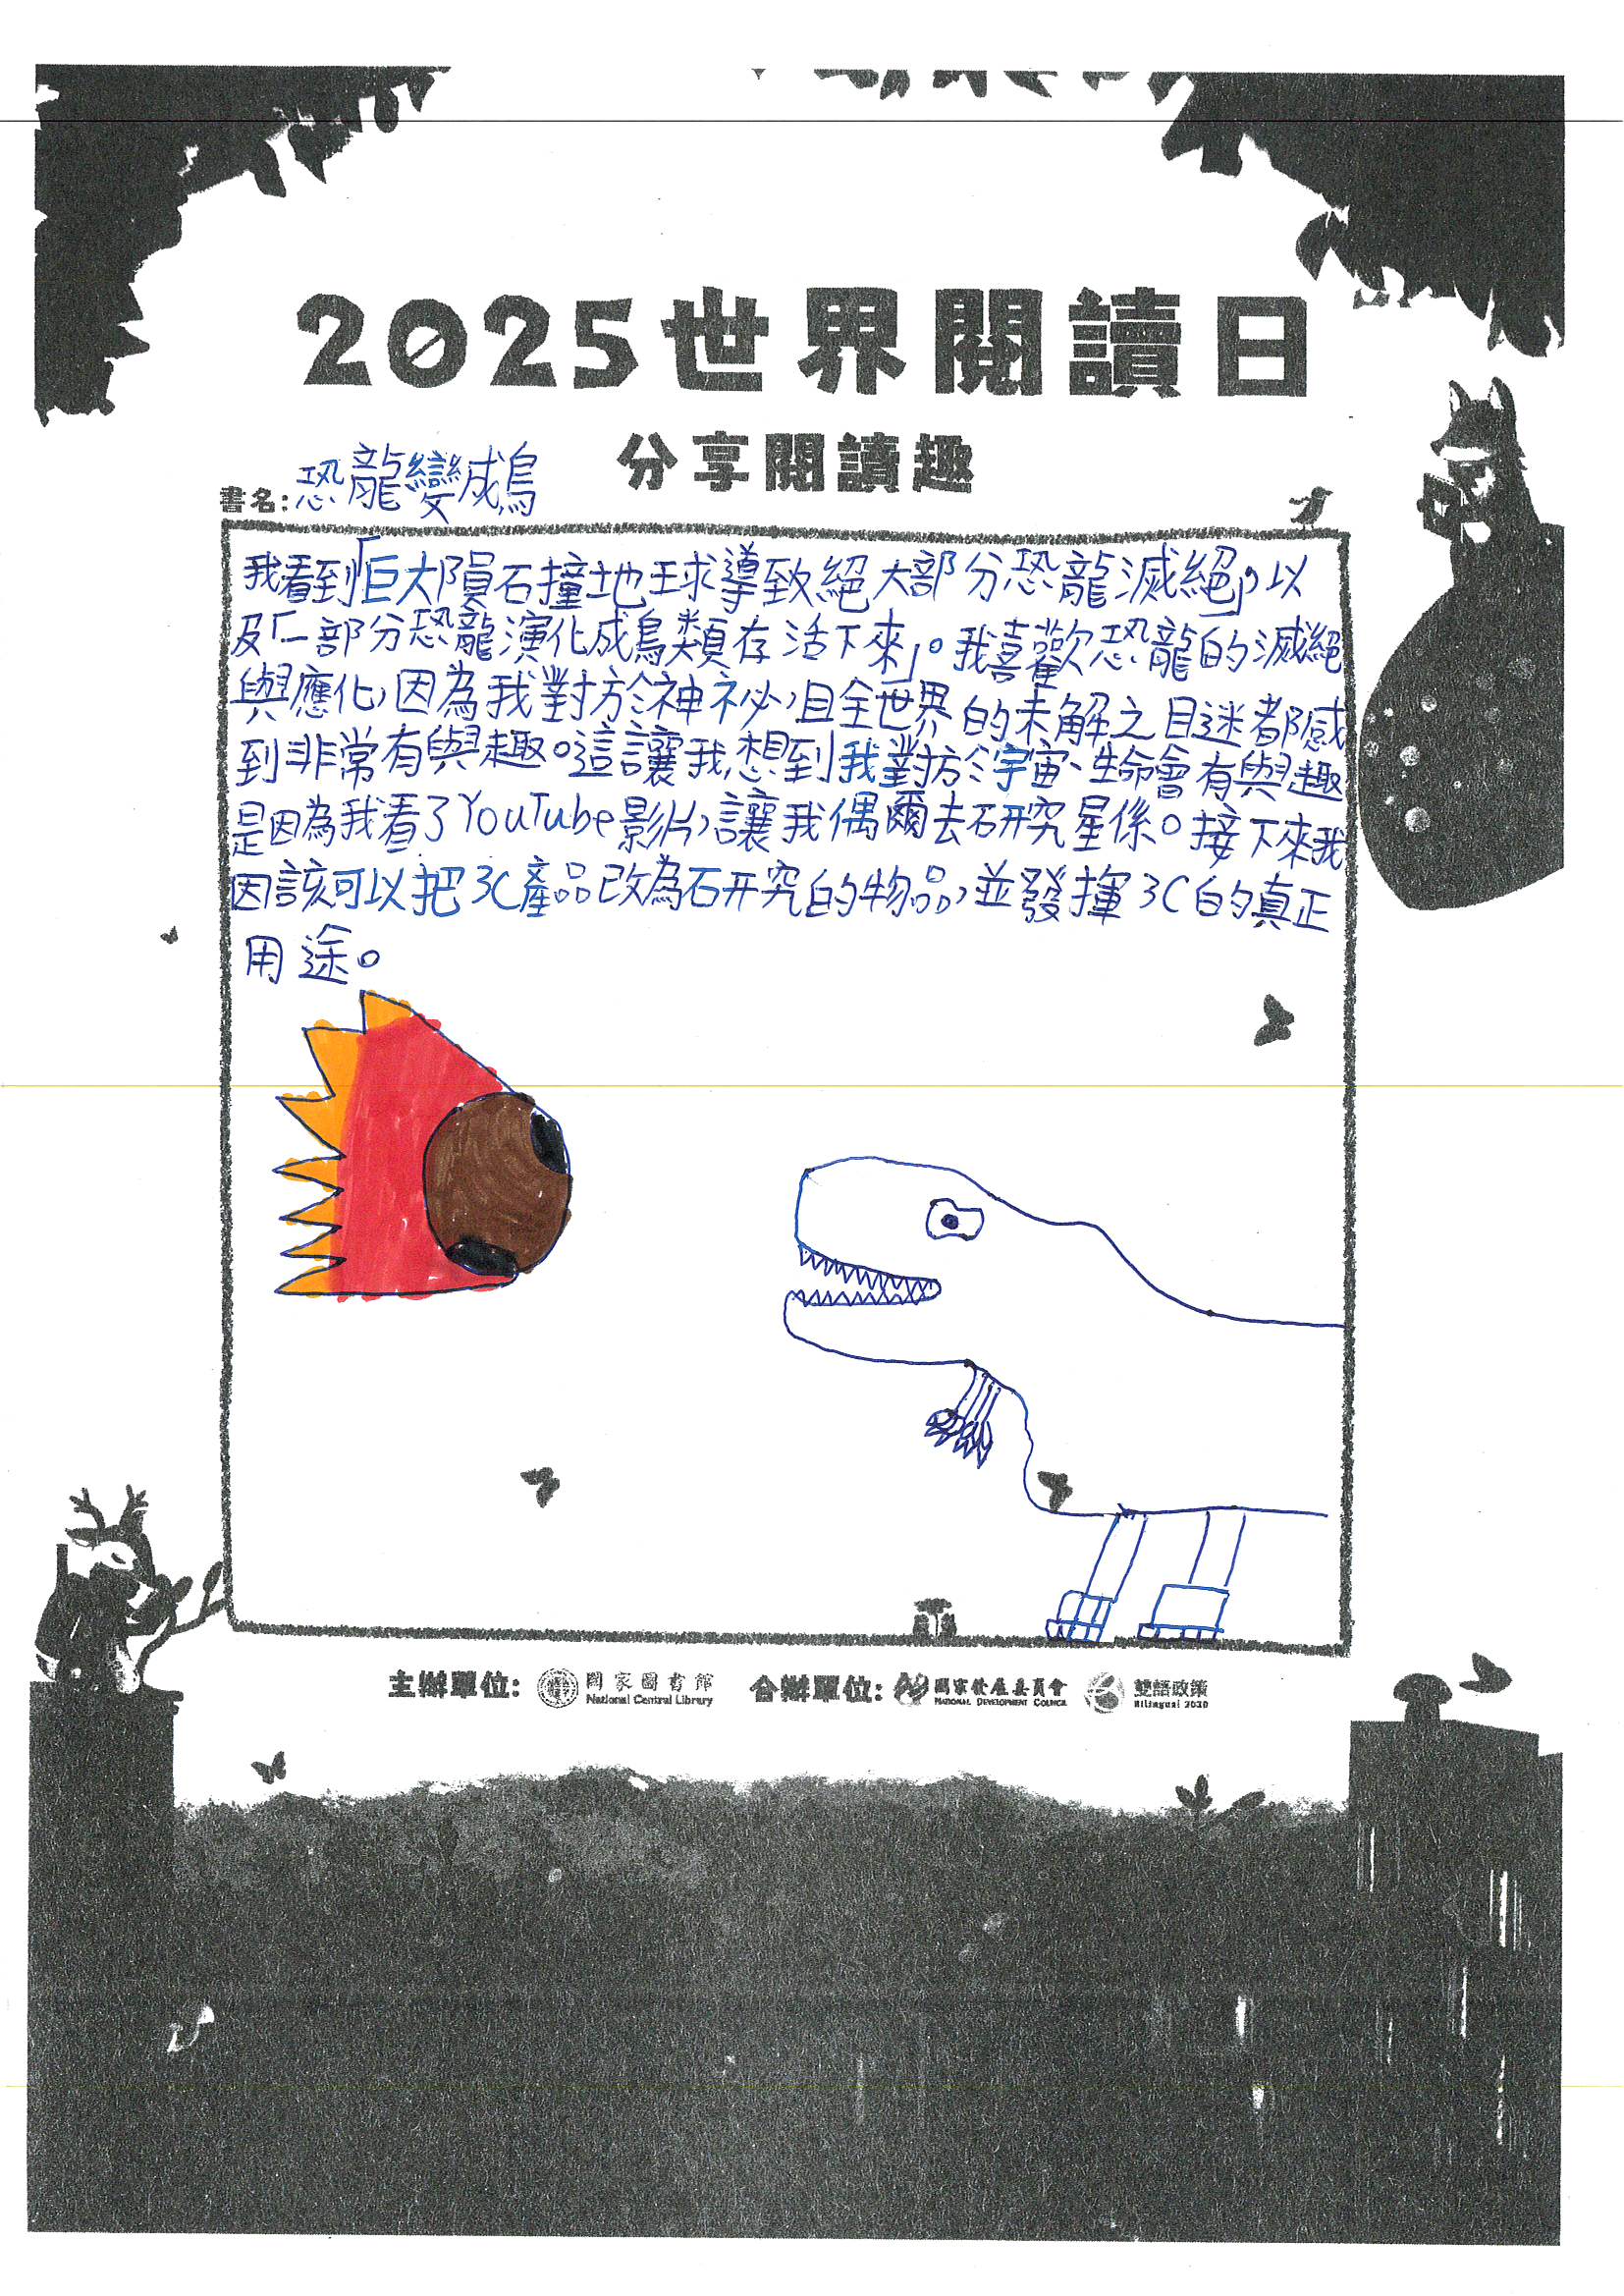 2025世界閱讀日
分享閱讀趣
書名:恐龍變成鳥
我看到「巨大隕石撞地球導致絕大部分恐龍滅絕」,以
及「一部分恐龍演化成鳥類存活下來」。我喜歡恐龍的滅絕
與應化,因為我對於神祕,且全世界的未解之目迷都感
到非常有與趣。這讓我想到我對於宇宙、生命會有與趣
是因為我看了YouTube影片,讓我偶爾去研究星係。接下來我
因該可以把3C產品改為研究的物品,並發揮3C的真正
用途。
主辦單位: 國家圖書館 National Central Library 合辦單位: 國家發展委員會 NATIONAL DEVELOPMENT COUNCIL 雙語政策 Bilingual 2030